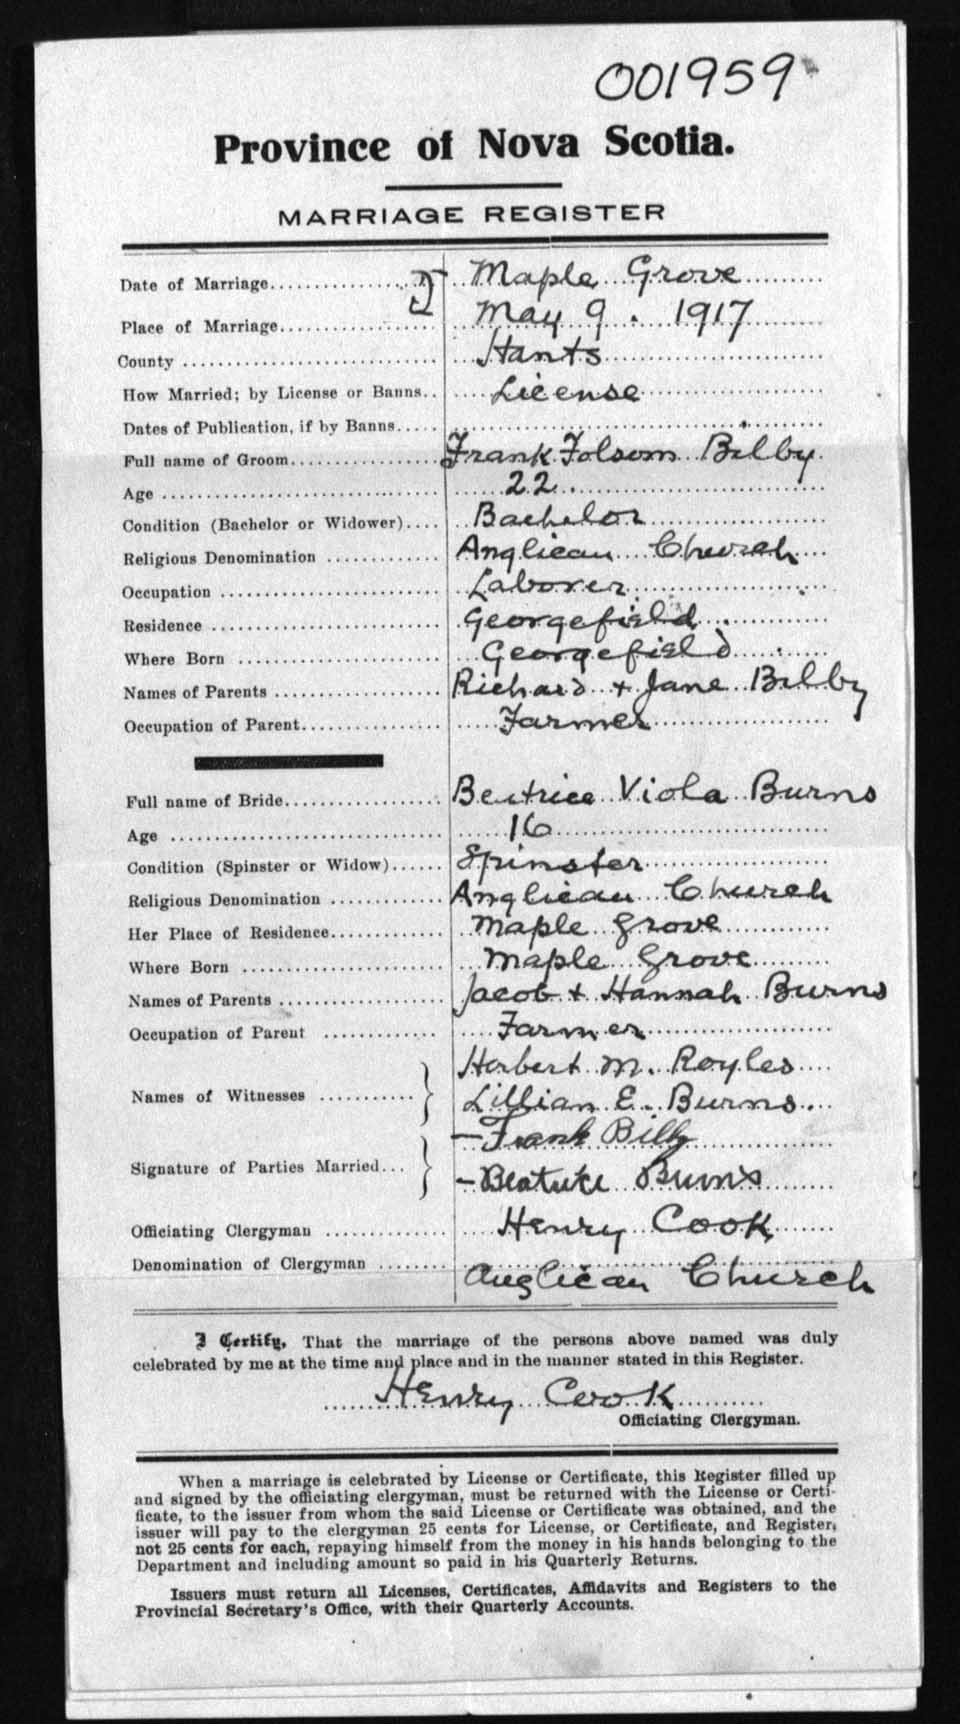 001959
Province of Nova Scotia.
MARRIAGE REGISTER
Date of Marriage Maple Grove
Place of Marriage May 9. 1917
County Hants
How Married; by License or Banns License
Dates of Publication, if by Banns
Full name of Groom Frank Folsom Bilby
Age 22
Condition (Bachelor or Widower) Bachelor
Religious Denomination Anglican Church
Occupation Laborer
Residence Georgefield
Where Born Georgefield
Names of Parents Richard + Jane Bilby
Occupation of Parent Farmer
Full name of Bride Beatrice Viola Burns
Age 16
Condition (Spinster or Widow) Spinster
Religious Denomination Anglican Church
Her Place of Residence Maple Grove
Where Born Maple Grove
Names of Parents Jacob + Hannah Burns
Occupation of Parent Farmer
Herbert M. Royles
Names of Witnesses
Lillian E. Burns
- Frank Bilby
Signature of Parties Married
- Beatrice Burns
Officiating Clergyman Henry Cook
Denomination of Clergyman Anglican Church
I Certify, That the marriage of the persons above named was duly
celebrated by me at the time and place and in the manner stated in this Register.
Henry Cook
Officiating Clergyman.
When a marriage is celebrated by License or Certificate, this Register filled up
and signed by the officiating clergyman, must be returned with the License or Certi-
ficate, to the issuer from whom the said License or Certificate was obtained, and the
issuer will pay to the clergyman 25 cents for License, or Certificate, and Register;
not 25 cents for each, repaying himself from the money in his hands belonging to the
Department and including amount so paid in his Quarterly Returns.
Issuers must return all Licenses, Certificates, Affidavits and Registers to the
Provincial Secretary's Office, with their Quarterly Accounts.